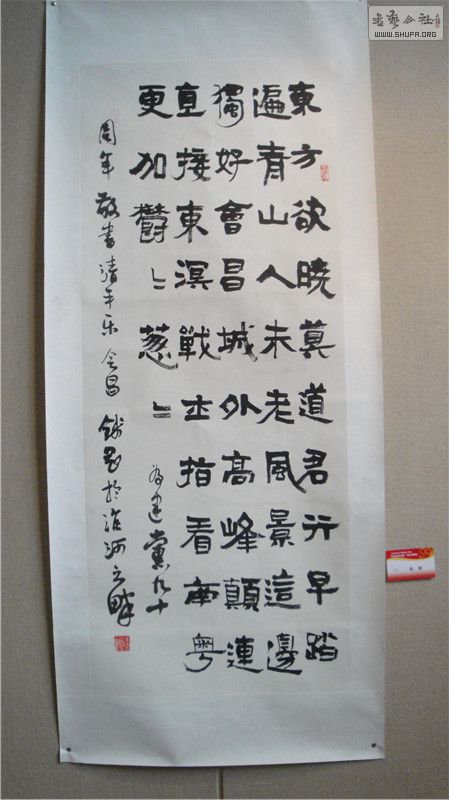 東方欲曉莫道君行早踏
遍青山人未老風景這邊
獨好會昌城外高峰顛連
直接東溟戰士指看南粤
更加鬱〻葱〻 为建黨九十
周年敬書清平乐 会昌 於河之畔
書藝公社
WWW.SHUFA.ORG